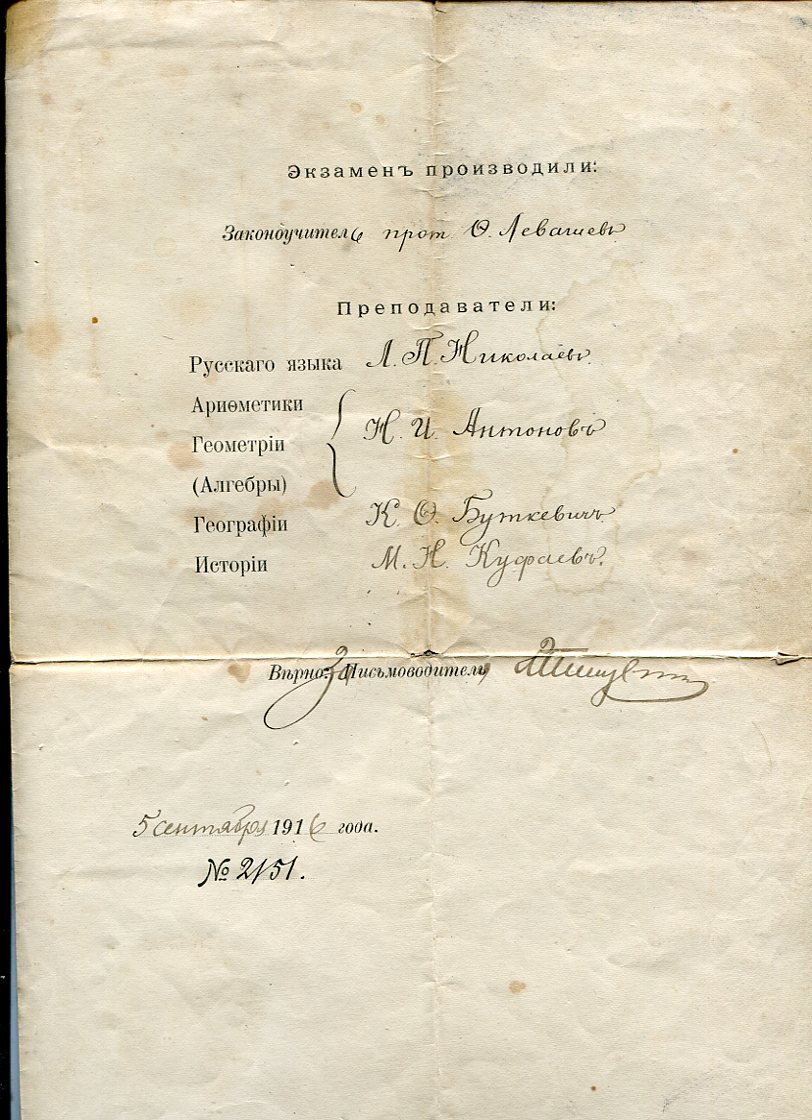 Экзаменъ производили:
Законоучитель прот. Ѳ. Левашевъ
Преподаватели:
Русскаго языка Л. П. Николаевъ
Ариѳметики
Геометріи Н. И. Антоновъ
(Алгебры)
Географіи К. Ѳ. Буткевичъ
Исторіи М. Н. Куфаевъ.
Вѣрно: За Письмоводителя
5 сентября 1916 года.
№ 2151.